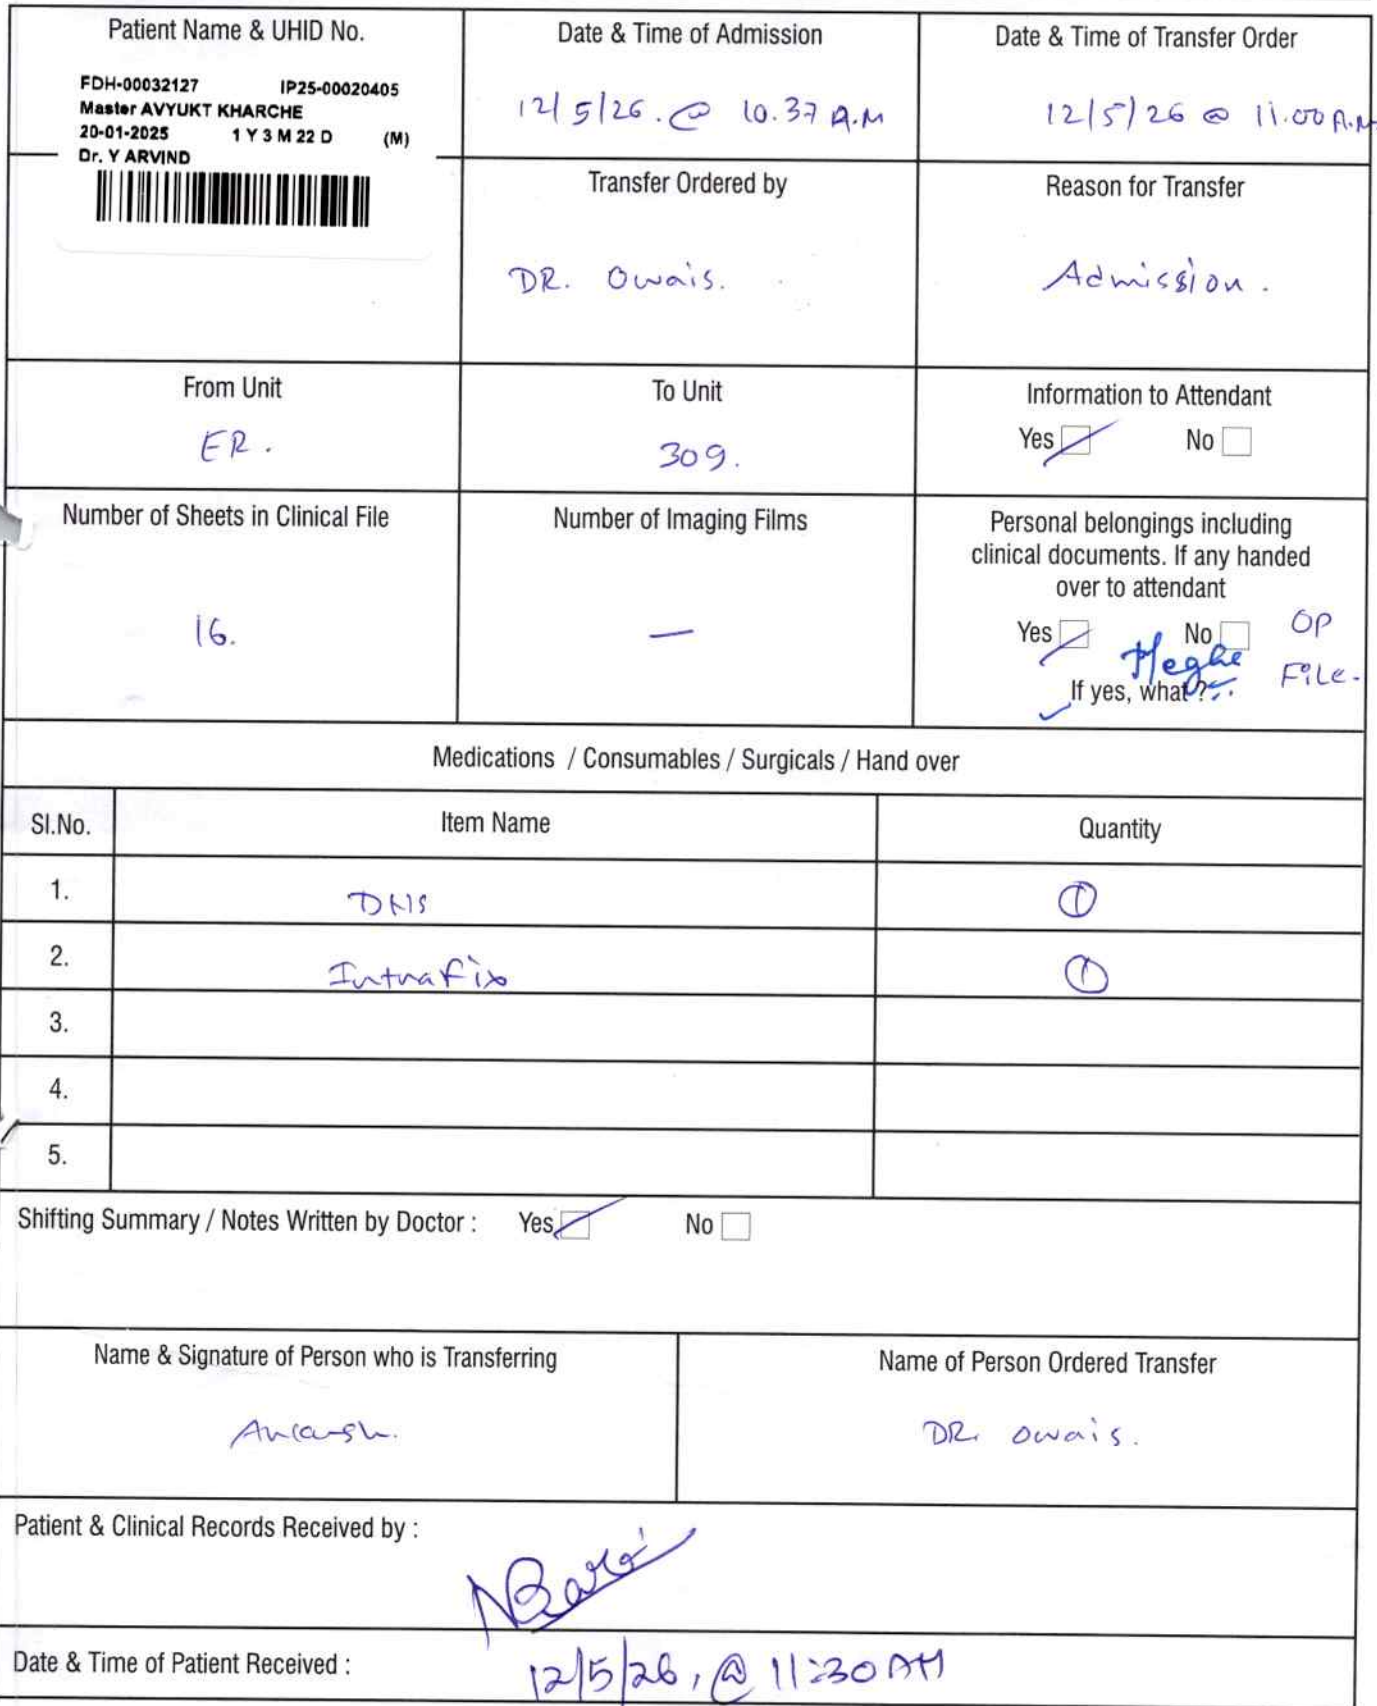 Patient Name & UHID No.
FDH-00032127 IP25-00020405
Master AVYUKT KHARCHE
20-01-2025 1 Y 3 M 22 D (M)
Dr. Y ARVIND
Date & Time of Admission
12/5/26. @ 10.37 A.M
Date & Time of Transfer Order
12/5/26 @ 11.00 A.M
Transfer Ordered by
DR. Owais.
Reason for Transfer
Admission.
From Unit
ER.
To Unit
309.
Information to Attendant
Yes No
Number of Sheets in Clinical File
16.
Number of Imaging Films
—
Personal belongings including
clinical documents. If any handed
over to attendant
Yes No OP
File.
If yes, what ?
Medications / Consumables / Surgicals / Hand over
Sl.No. Item Name Quantity
1. DNS 1
2. Intrafix 1
3.
4.
5.
Shifting Summary / Notes Written by Doctor : Yes No
Name & Signature of Person who is Transferring
Name of Person Ordered Transfer
DR. Owais.
Patient & Clinical Records Received by :
Date & Time of Patient Received : 12/5/26, @ 11:30 AM